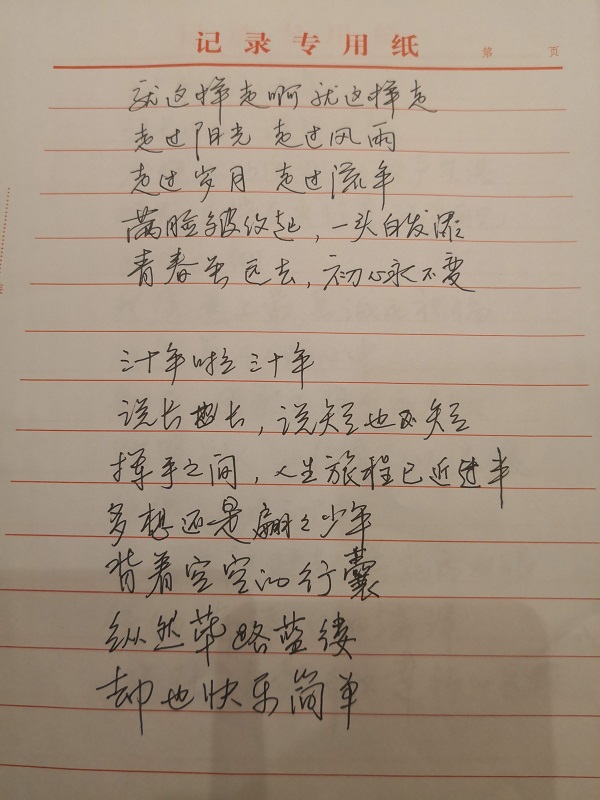 记录专用纸 第 页
就这样走啊就这样走
走过阳光 走过风雨
走过岁月 走过流年
满脸皱纹起，一头白发
青春虽远去，初心永不变
三十年啦三十年
说长也长，说短也不短
挥手之间，人生旅程已近过半
多想还是翩翩少年
背着空空的行囊
纵然筚路蓝缕
却也快乐简单